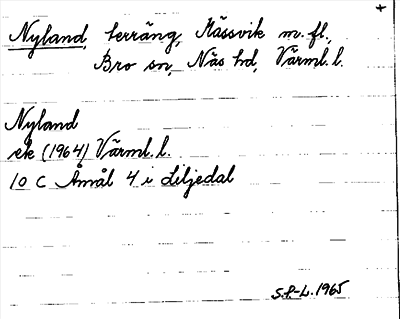 +
Nyland, terräng, Mässvik m. fl.,
Bro sn, Näs hd, Värml. l.
Nyland
ek (1964) Värml. l.
10 C Åmål 4 i Liljedal
S.P-L. 1965